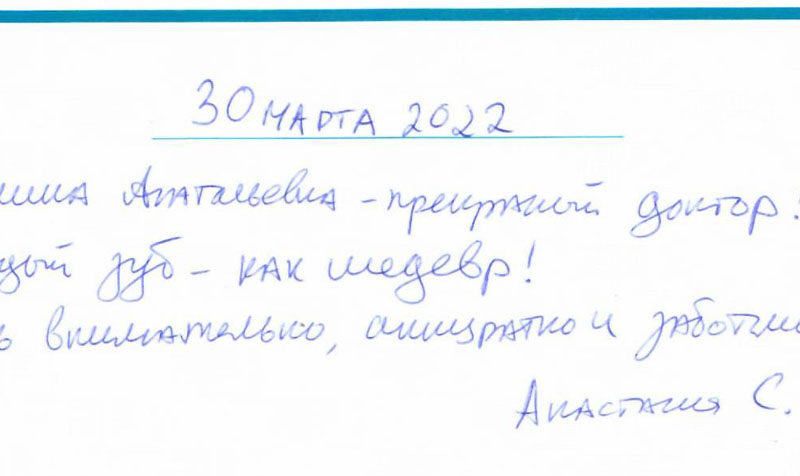 30 МАРТА 2022
Анатольевна - прекрасный доктор!
зуб - как шедевр!
внимательно, аккуратно и
Анастасия С.